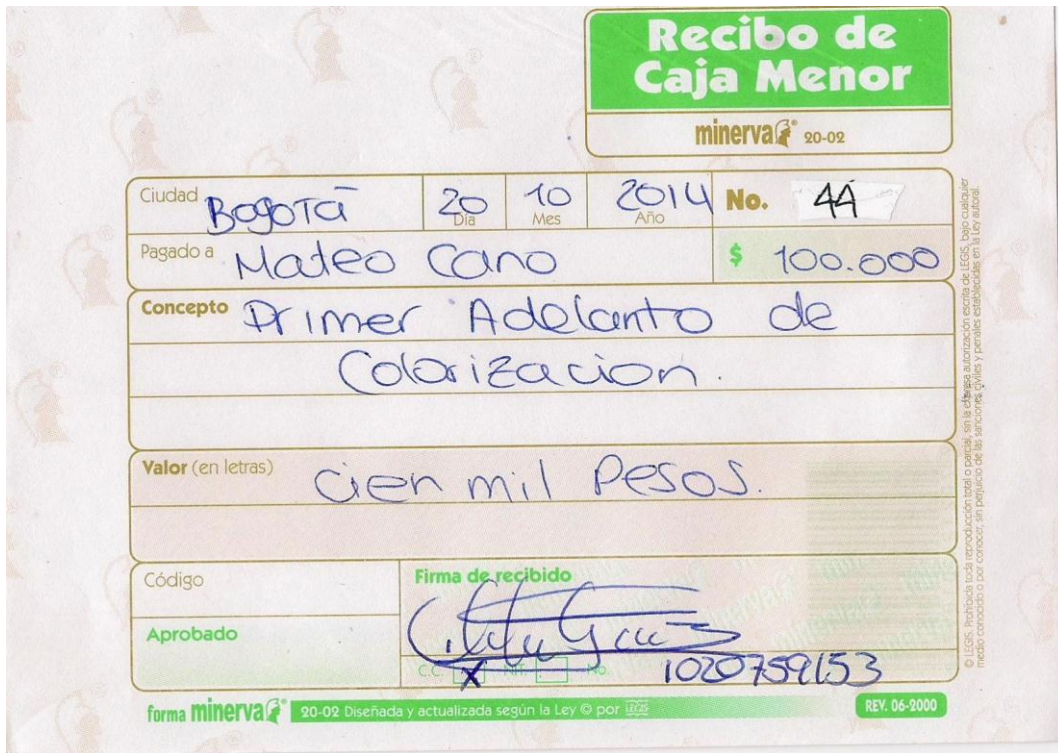 Recibo de
Caja Menor
minerva® 20-02
Ciudad Bogotá 20 Día 10 Mes 2014 Año No. 44
Pagado a Mateo Cano $ 100.000
Concepto Primer Adelanto de
Colorizacion.
Valor (en letras) cien mil Pesos.
Código
Firma de recibido
Aprobado
C.C. X NIT. No. 1020759153
forma minerva® 20-02 Diseñada y actualizada según la Ley © por LEGIS REV. 06-2000
© LEGIS. Prohibida toda reproducción total o parcial, sin la expresa autorización escrita de LEGIS, bajo cualquier
medio conocido o por conocer, sin perjuicio de las sanciones civiles y penales establecidas en la Ley autoral.